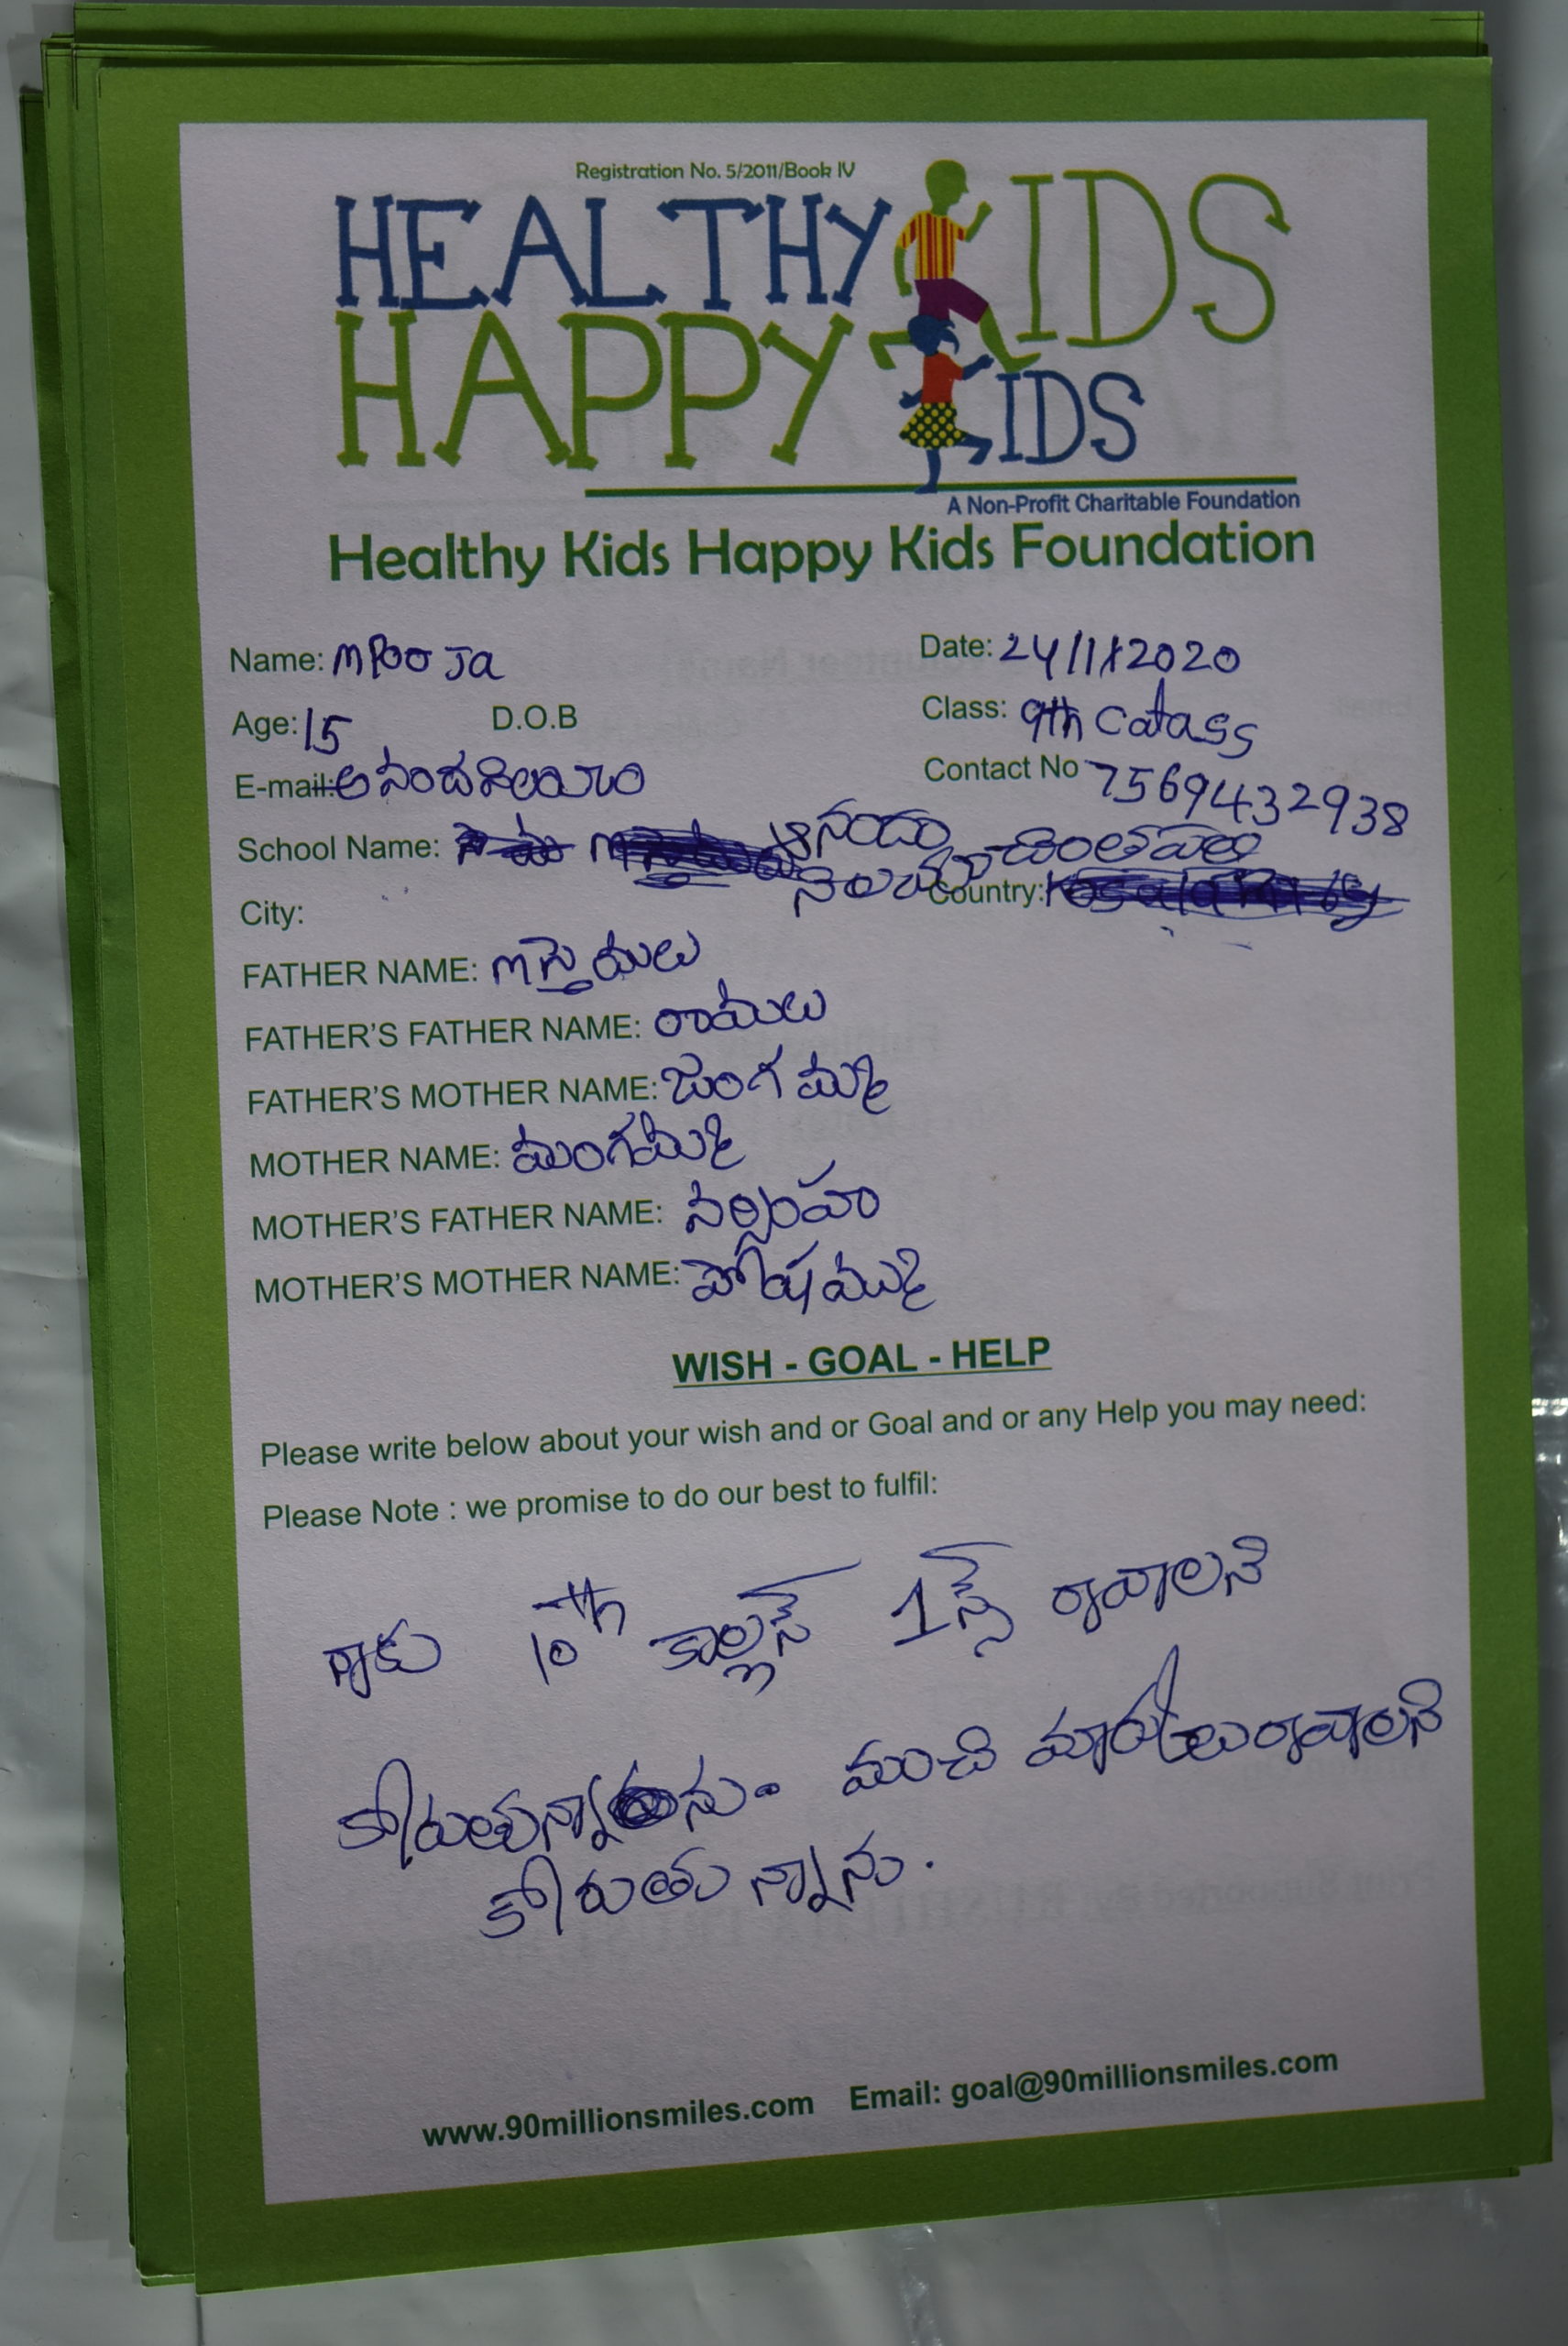 Registration No. 5/2011/Book IV
HEALTHY KIDS
HAPPY KIDS
A Non-Profit Charitable Foundation
Healthy Kids Happy Kids Foundation
Name: M POOJa Date: 24/11/2020
Age: 15 D.O.B Class: 9th Catass
E-mail: ఆనందనిలయం Contact No 7569432938
School Name: ఆనందా నిలయం చింతపల్లి
City: Country:
FATHER NAME: M
FATHER'S FATHER NAME: రాములు
FATHER'S MOTHER NAME: జంగమ్మ
MOTHER NAME: మంగమ్మ
MOTHER'S FATHER NAME: నర్సింహ
MOTHER'S MOTHER NAME: పోషమ్మ
WISH - GOAL - HELP
Please write below about your wish and or Goal and or any Help you may need:
Please Note : we promise to do our best to fulfil:
నాకు 10th రావాలని
కోరుతున్నాను. మంచి రావాలని
కోరుతున్నాను.
www.90millionsmiles.com Email: goal@90millionsmiles.com